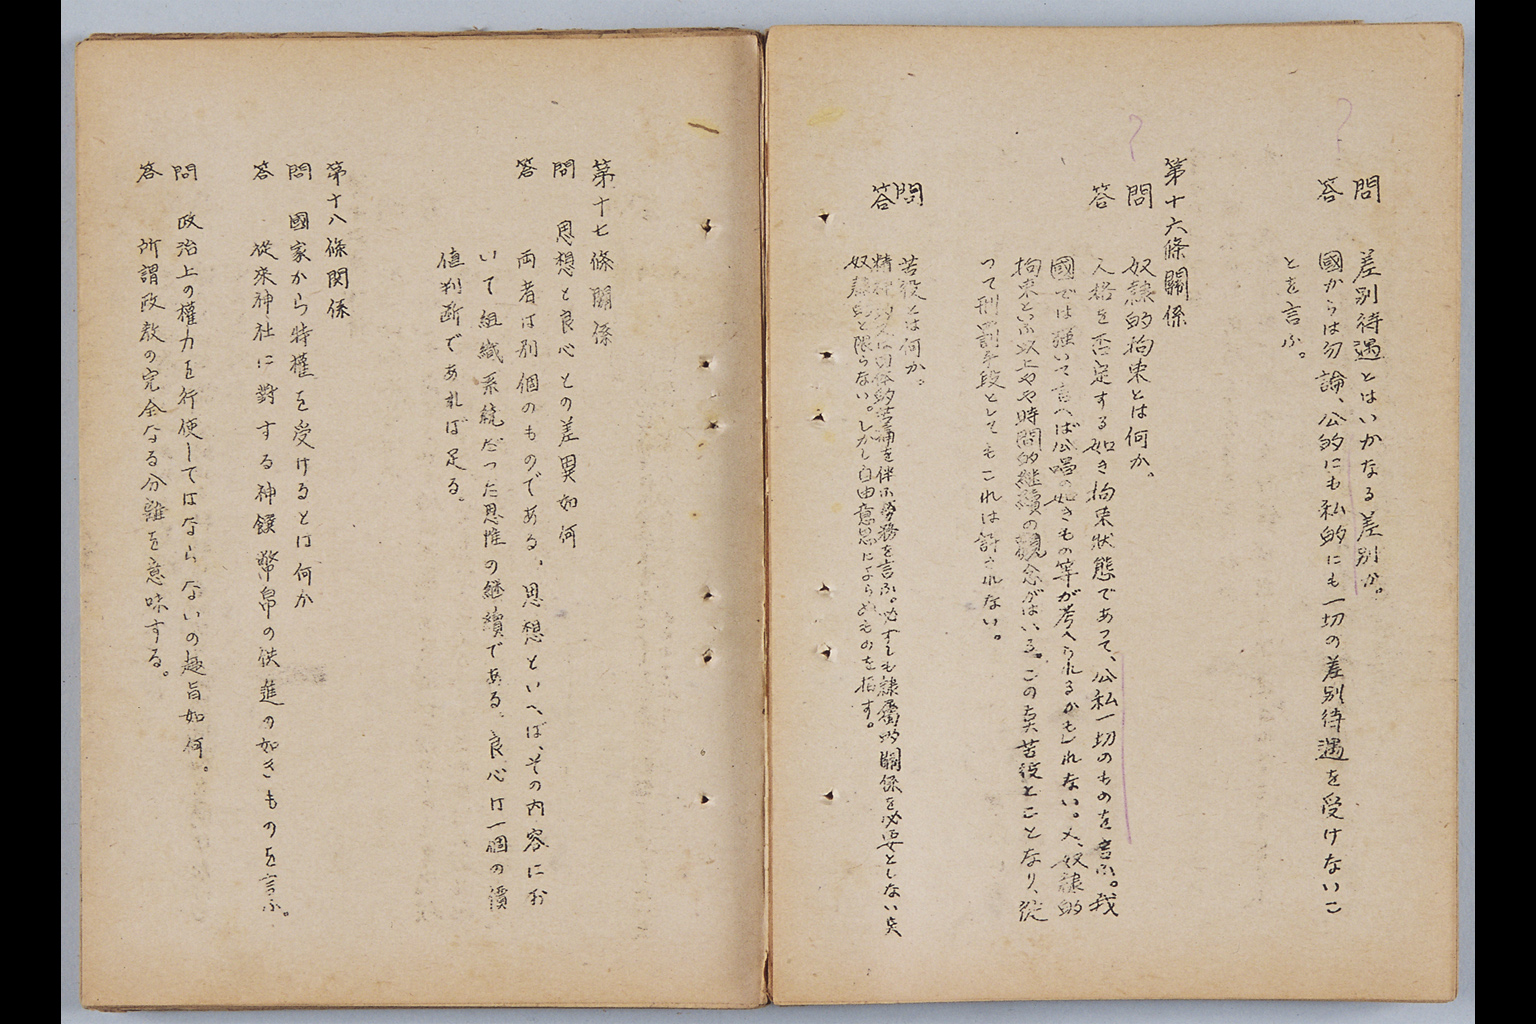 問　差別待遇とはいかなる差別か。
答　國からは勿論、公的にも私的にも一切の差別待遇を受けないこ
とを言ふ。
第十六條關係
問　奴隷的拘束とは何か、
答　人格を否定する如き拘束狀態であつて、公私一切のものを言ふ。我
國では强いて言へば公娼の如きもの等が考へられるかもしれない。又、奴隷的
拘束といふ以上やや時間的継續の観念がはいる。この奌苦役とことなり、從
つて刑罰手段としてもこれは許されない。
問　苦役とは何か。
答　精神的又は肉体的苦痛を伴ふ勞務を言ふ。必ずしも隷屬的關係を必要としない奌
奴隷的と限らない。しかし自由意思によらぬものを指す。
第十七條關係
問　思想と良心との差異如何
答　両者は別個のものである。思想といへば、その内容にお
いて組織系統だつた思惟の継續である。良心は一個の價
値判断であれば足る。
第十八條関係
問　國家から特權を受けるとは何か
答　從來神社に對する神饌幣帛の供進の如きものを言ふ。
問　政治上の權力を行使してはならないの趣旨如何。
答　所謂政教の完全なる分離を意味する。